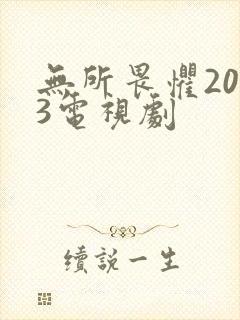 無所畏懼20
3電視劇
續說一生